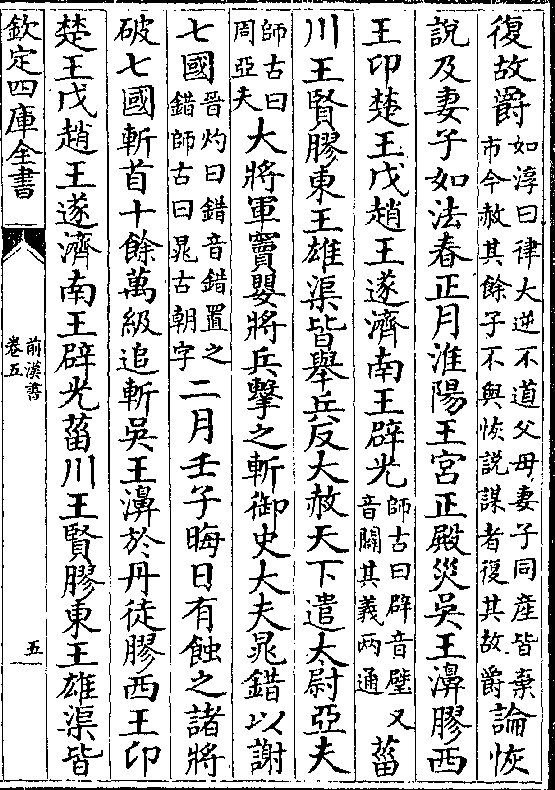 復故爵如淳曰律大逆不道父母妻子同産皆棄市今赦其餘子不與恢説謀者復其故爵論恢
說及妻子如法春正月淮陽王宮正殿災吳王濞膠西
王卬楚王戊趙王遂濟南王辟光師古曰辟音壁又音闢其義兩通菑
川王賢膠東王雄渠皆舉兵反大赦天下遣太尉亞夫
師古曰周亞夫大將軍竇嬰將兵擊之斬御史大夫晁錯以謝
七國晉灼曰錯音錯置之錯師古曰晁古朝字二月壬子晦日有蝕之諸將
破七國斬首十餘萬級追斬吳王濞於丹徒膠西王卬
楚王戊趙王遂濟南王辟光菑川王賢膠東王雄渠皆
欽定四庫全書
前漢書
卷五
五